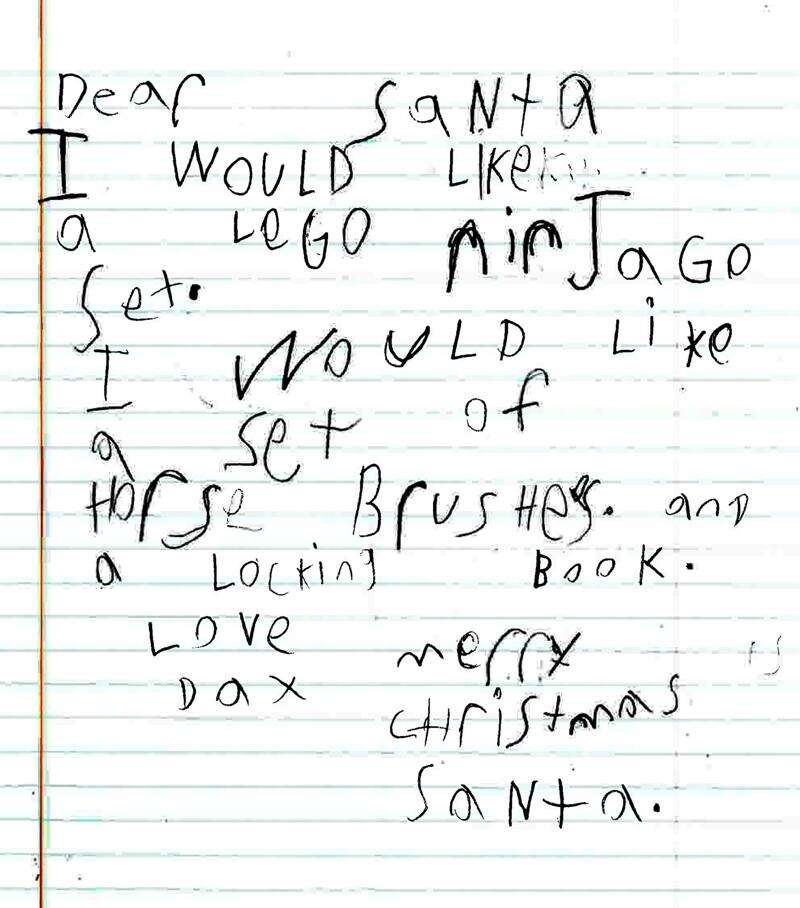 Dear SaNta
I WOULD LIKe
a LeGO ninJaGO
Set.
I WOULD LiKe
a Set of
HOrse BrusHes. and
a LOcKing BOOK.
LOVe
Dax
merry
CHristmas
SaNta.